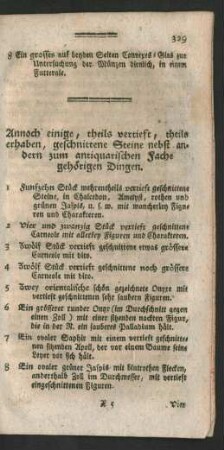 329
8 Ein grosses auf beyden Seiten Convexes-Glas zur
Untersuchung der Münzen dienlich, in einem
Futterale.
Annoch einige, theils vertieft, theils
erhaben, geschnittene Steine nebst an-
dern zum antiquarischen Fache
gehörigen Dingen.
1 Funfzehn Stück mehrentheils vertieft geschnittene
Steine, in Chalcedon, Ametyst, rothen und
grünen Jaspis, u. s. w. mit mancherley Figu-
ren und Charakteren.
2 Vier und zwanzig Stück vertieft geschnittene
Carneole mit allerley Figuren und Charakteren.
3 Zwölf Stück vertieft geschnittene etwas grössere
Carneole mit dito.
4 Zwölf Stück vertieft geschnittene noch grössere
Carneole mit dito.
5 Zwey orientalische schön gezeichnete Onyxe mit
vertieft geschnittenen sehr saubern Figuren.
6 Ein grösserer runder Onyx (im Durchschnitt gegen
einen Zoll) mit einer sitzenden nackten Figur,
die in der R. ein sauberes Palladium hält.
7 Ein ovaler Saphir mit einem vertieft geschnitte-
nen sitzenden Apoll, der vor einem Baume seine
Leyer vor sich hält.
8 Ein ovaler grüner Jaspis mit blutrothen Flecken,
anderthalb Zoll im Durchmesser, mit vertieft
eingeschnittenen Figuren.
Vier